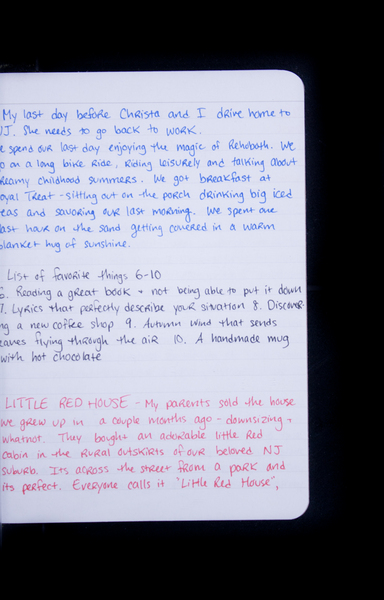 My last day before Christa and I drive home to
NJ. She needs to go back to work.
We spend our last day enjoying the magic of Rehoboth. We
go on a long bike ride, riding leisurely and talking about
dreamy childhood summers. We got breakfast at
Royal Treat - sitting out on the porch drinking big iced
teas and savoring our last morning. We spent one
last hour on the sand getting covered in a warm
blanket hug of sunshine.
List of favorite things 6-10
6. Reading a great book + not being able to put it down
7. Lyrics that perfectly describe your situation 8. Discover-
ing a new coffee shop 9. Autumn wind that sends
leaves flying through the air 10. A handmade mug
with hot chocolate
LITTLE RED HOUSE - My parents sold the house
we grew up in a couple months ago - downsizing +
whatnot. They bought an adorable little red
cabin in the rural outskirts of our beloved NJ
suburb. Its across the street from a park and
its perfect. Everyone calls it "Little Red House",